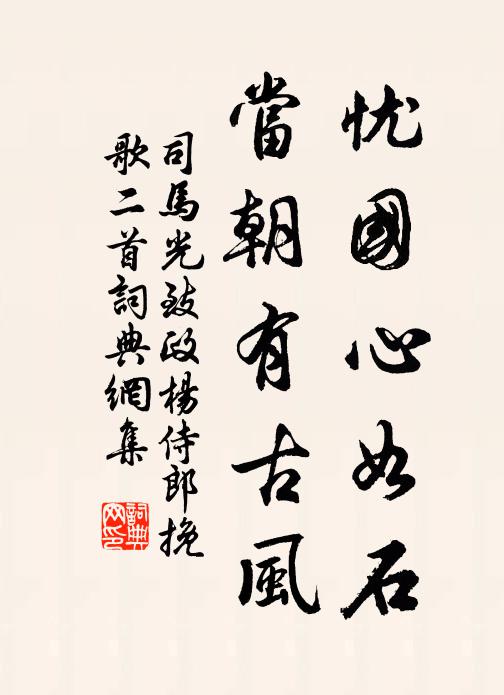 忧國心如石
當朝有古風
司馬光致政楊侍郎挽
歌二首詞典網集
詞典
网印